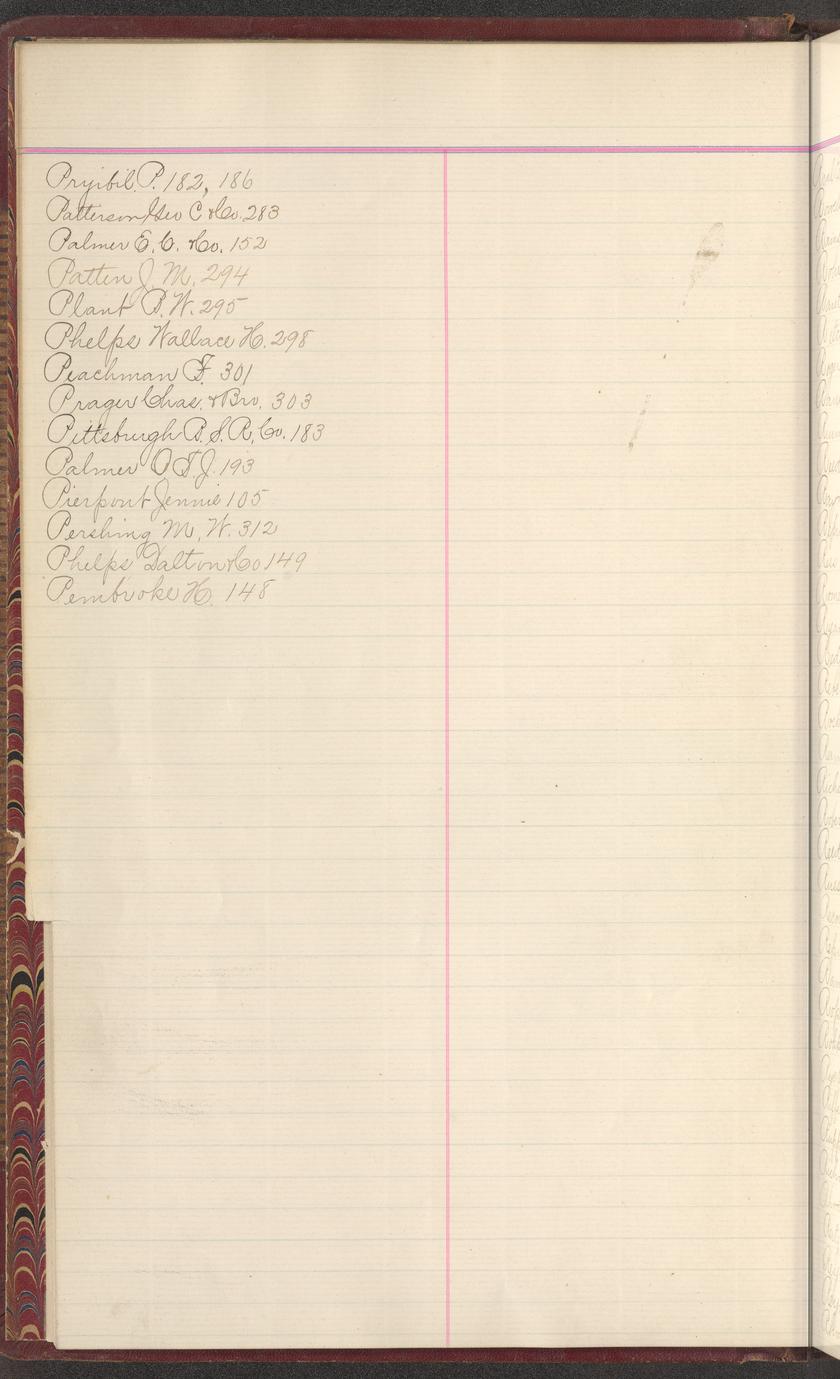 Pryibil P. 182, 186
Patterson Geo C & Co. 283
Palmer E. C. & Co. 152
Patten J. M. 294
Plant B. W. 295
Phelps Wallace H. 298
Peachman F. 301
Prager Chas. & Bro. 303
Pittsburgh B. S. R. Co. 183
Palmer O T. J. 193
Pierpont Jennie 105
Pershing M, W. 312
Phelps Dalton & Co 149
Pembroke H. 148